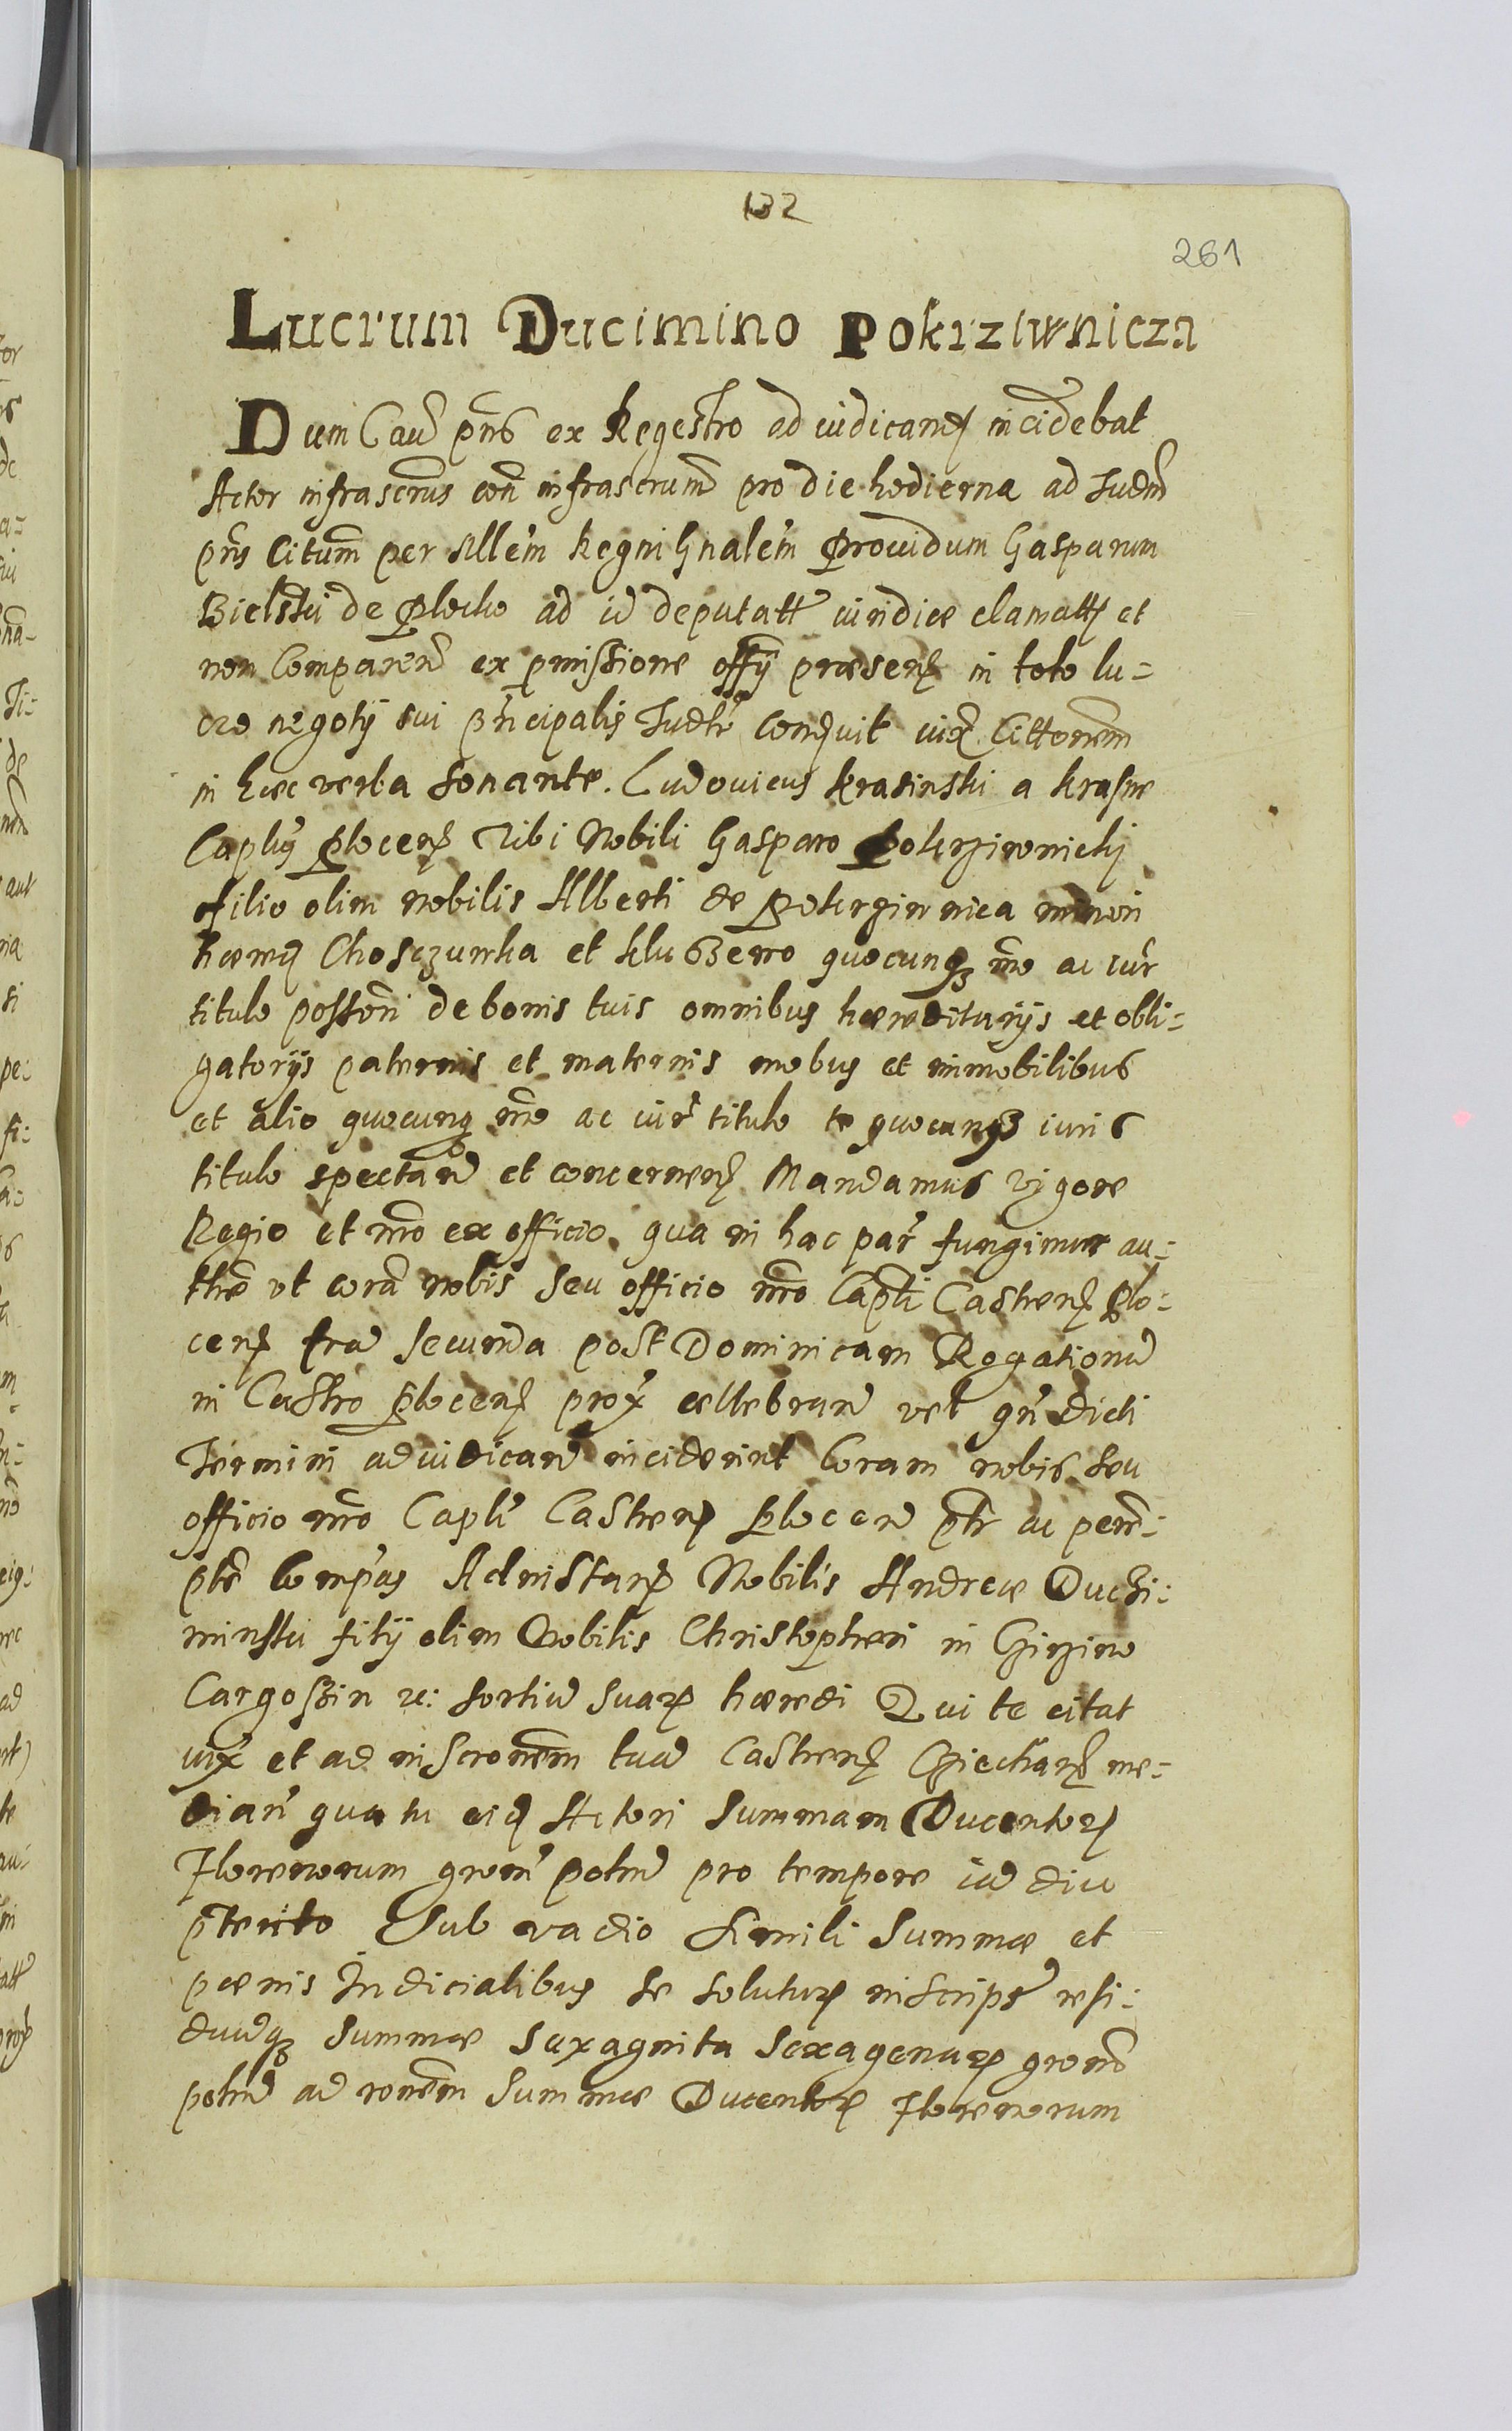 132
261
Lucrum Ducimino Pokrziwnicza
Dum Cauã pñs ex Regestro ad iudicand incidebat
Actor infrascrus con infrascrum pro die hodierna ad Iudm
pñs Citum per Mllem Regni Gnalem Prouidum Gasparum
Bielski de Plocko ad id deputatt iuridice clamatt et
non Comparen ex pmissione offy præsen in toto lu-
cro negotij sui principalis Iudtr condquit iux Cittonem
in hæc verba sonante. Ludouicus Krasinski a Krasne
Captus Plocen Tibi Nobili Gasparo Pokrziwnicki
filio olim nobilis Alberti de Pokrziwnica minori
hæred Chosczunka et Klußewo quocunq mo ac iur
titulo posseri de bonis tuis omnibus hæreditarijs et obli-
gatorijs paternis et maternis mobus et immobilibus
et alio quocunq mo ac iur titulo te quocunq iuris
titulo spectan et concernen Mandamus vigore
Regio et nro ex officio qua in hac par fungimur au-
the ut cora nobis seu officio nro Capti Castren Plo-
cen fra secunda post Dominicam Rogationu
in Castro Plocen prox cellebran vel qn dicti
Termini ad iudican inciderint Coram nobis seu
officio nro Capli Castren Plocen ptr ac perem-
pte Compas Ad instan Nobilis Andreæ Duczi-
minski filij olim Nobilis Christopheri in Girzino
Cargoßin rc: sortiu suar hæredi Qui te citat
iux et ad inscronem tua Castren Ciechan me-
dian qua tu eid Actori summam Ducentor
Florenorum gron polni pro tempore ia diu
pterito Sub vadio simili summæ et
pœnis Iudicialibus se solutur inscrips resi-
duuq summæ sexaginta sexagenar gron
polni ad ronem summæ Ducentor Florenorum